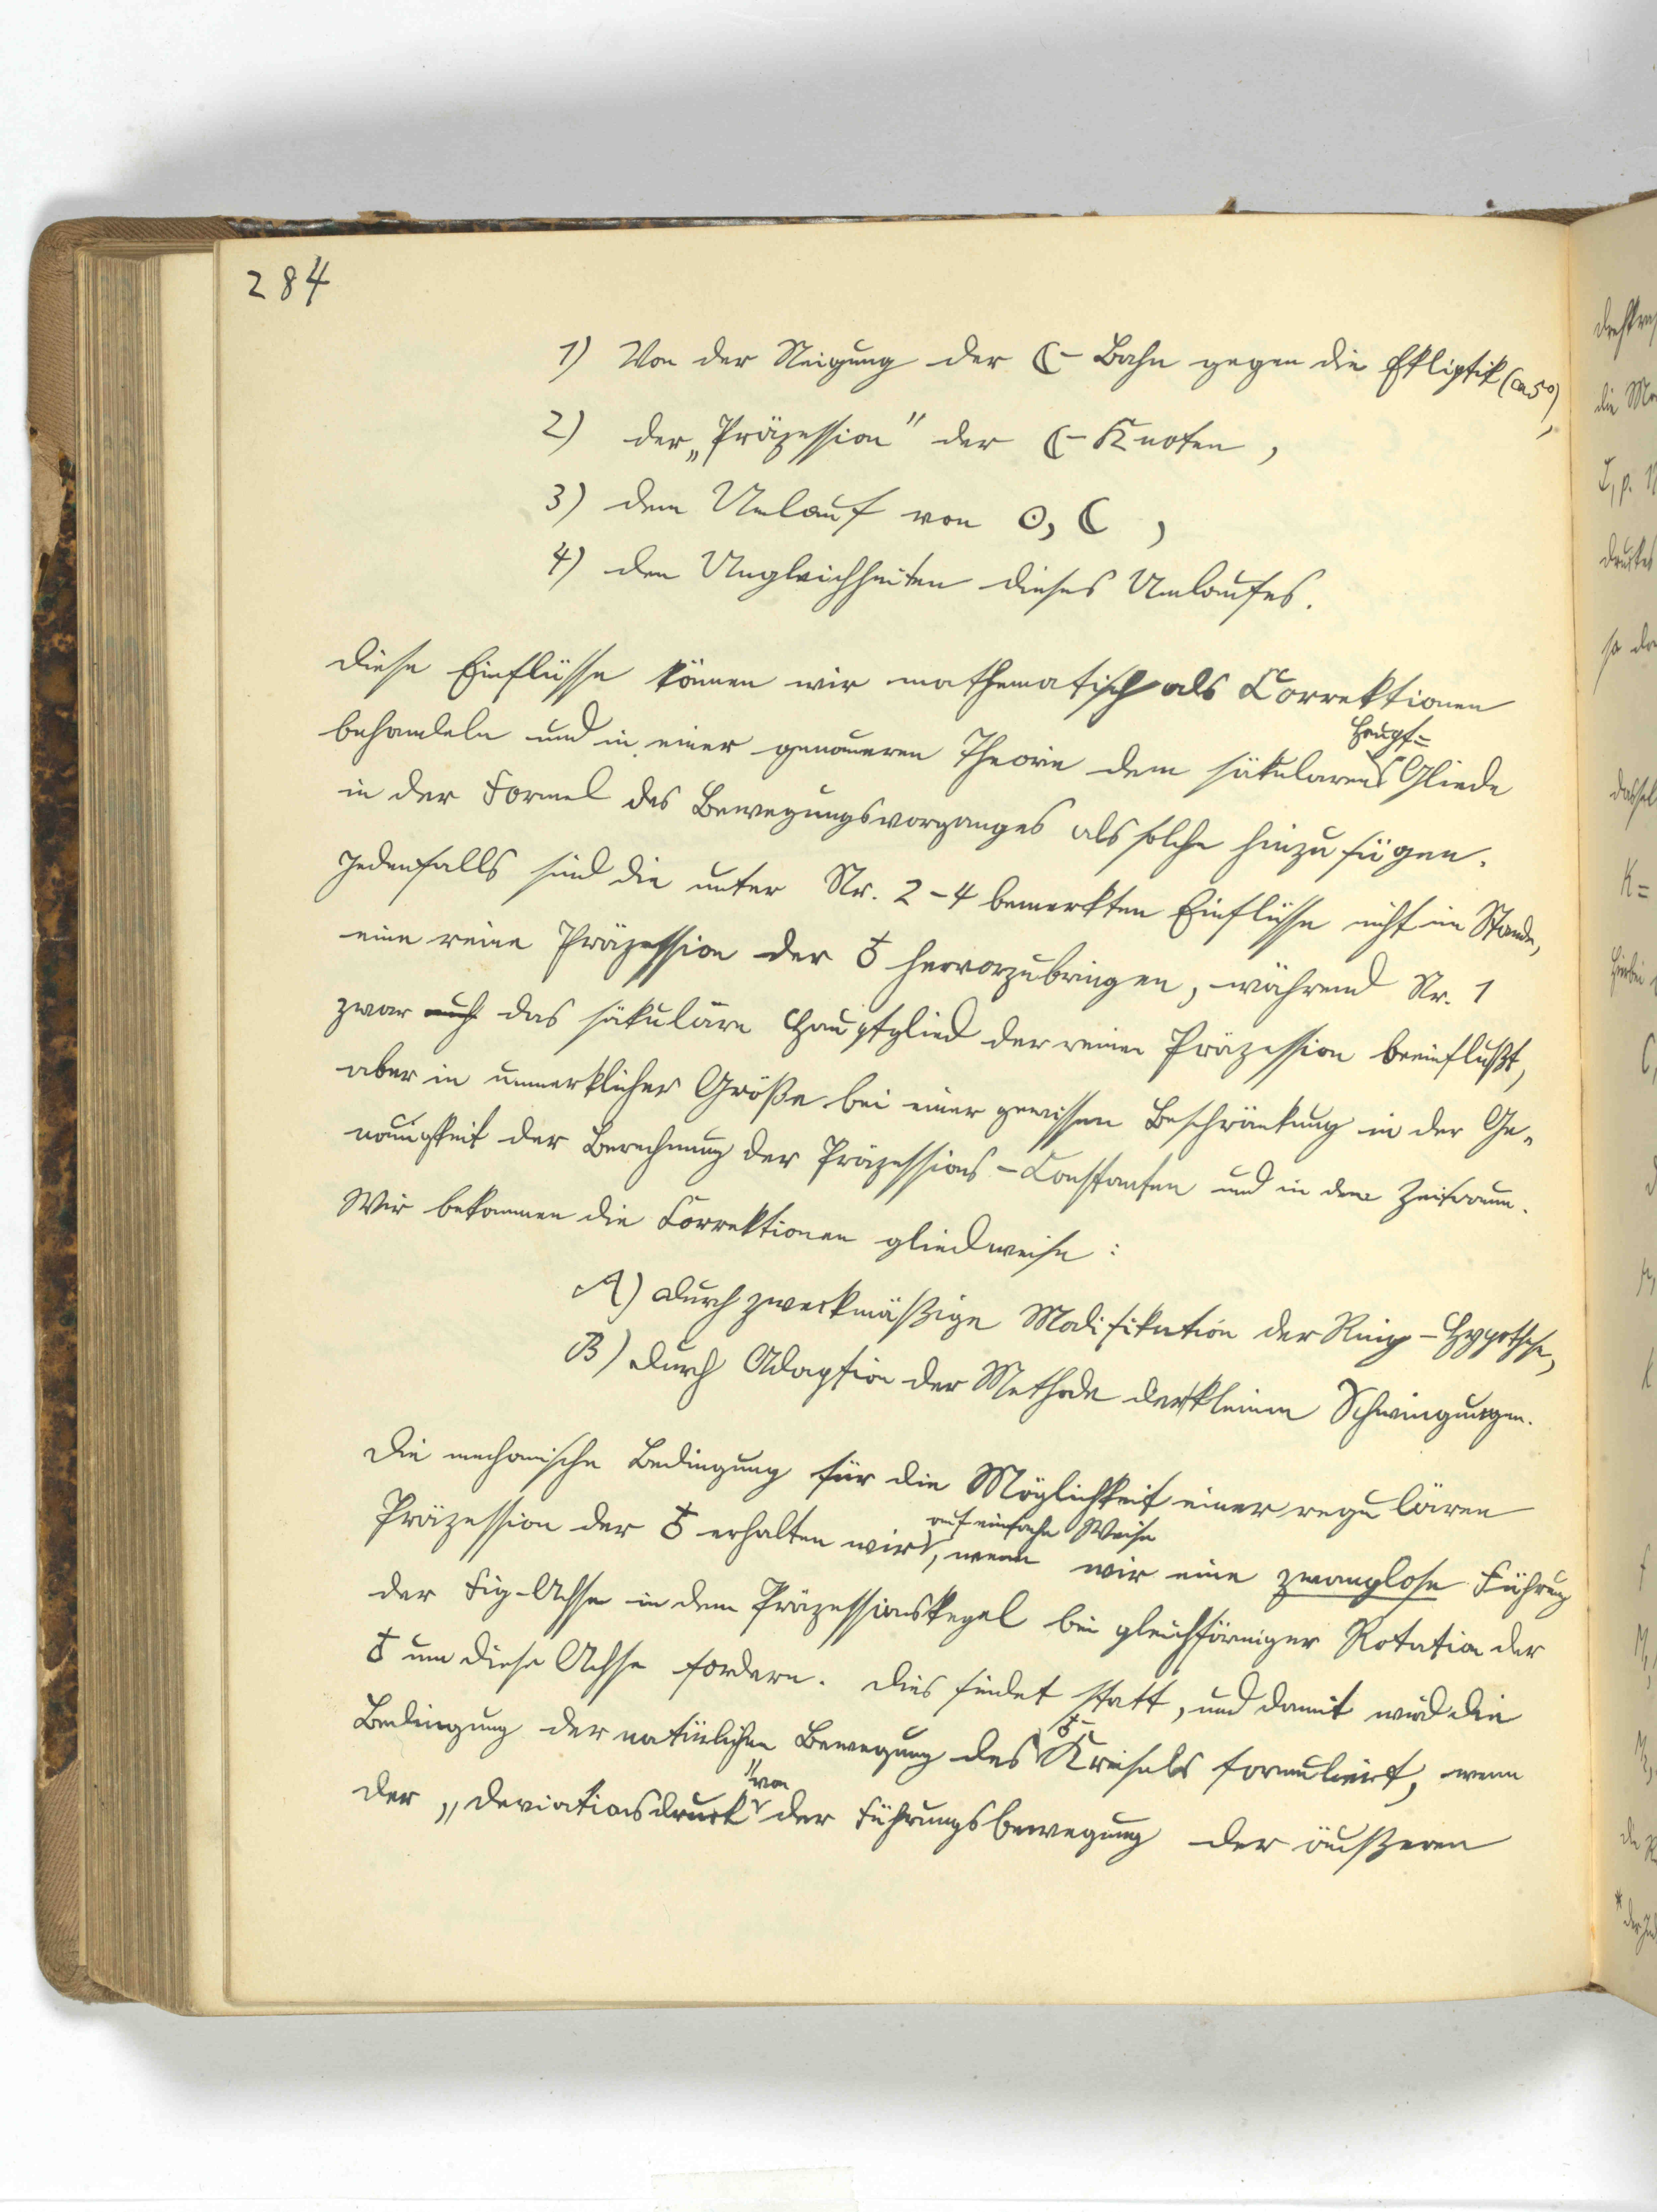 284
1) Von der Neigung der ☾-Bahn gegen die Ekliptik (ca 5°),
2) der „Präzession" der ☾-Knoten,
3) dem Umlauf von ☉, ☾,
4) den Ungleichheiten dieses Umlaufes.
Diese Einflüsse können wir mathematisch als Correktionen
Haupt=
behandeln und in einer genaueren Theorie dem säkularen Gliede
in der Formel des Bewegungsvorganges als solche hinzufügen.
Jedenfalls sind die unter Nr. 2-4 bemerkten Einflüsse nicht im Stande,
eine reine Präzession der ♁ hervorzubringen, während Nr. 1
zwar auch das säkulare Hauptglied der reinen Präzession beeinflußt,
aber in unmerklicher Größe bei einer gewissen Beschränkung in der Ge-
nauigkeit der Berechnung der Präzessions-Constanten und in dem Zeitraum.
Wir bekommen die Correktionen gliedweise:
A) durch zweckmäßige Modifikation der Ring-Hypothese,
B) durch Adaption der Methode der kleinen Schwingungen.
Die mechanische Bedingung für die Möglichkeit einer regulären
auf einfache Weise
Präzession der ♁ erhalten wir, wenn wir eine zwanglose Führung
der Fig-Achse in dem Präzessionskegel bei gleichförmiger Rotation der
♁ um diese Achse fordern. Dies findet statt, und damit wird die
♁-
Bedingung der natürlichen Bewegung des Kreisels formuliert, wenn
von
der „Deviationsdruck" der Führungsbewegung der äußeren